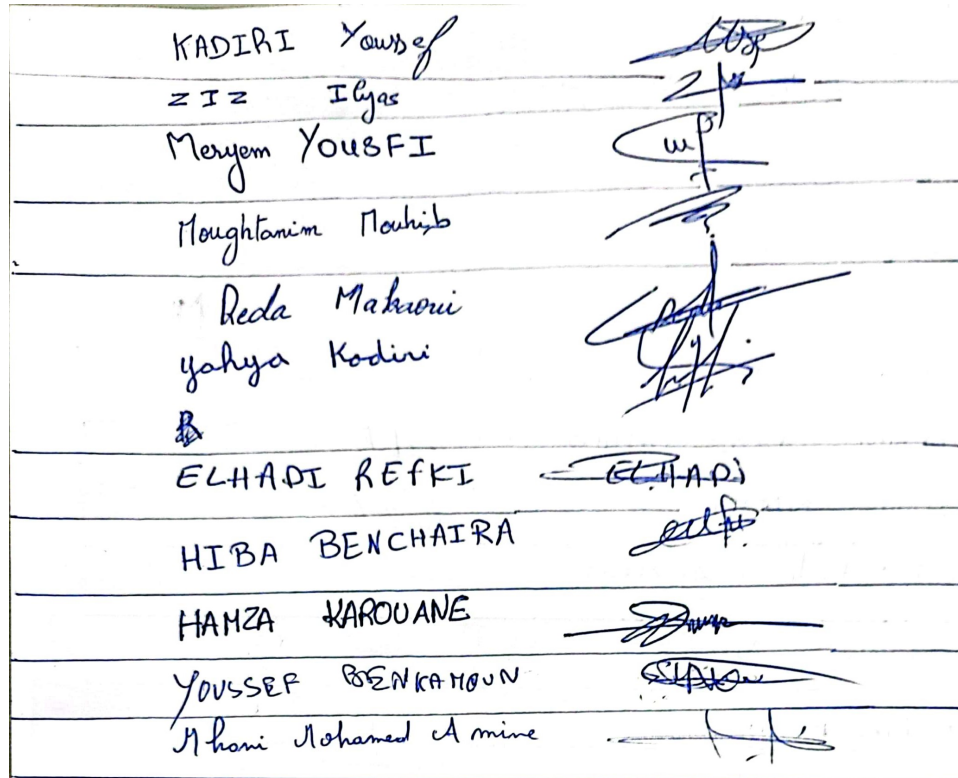 KADIRI Youssef
ZIZ Ilyas
Meryem YOUSFI
Moughtanim Mouhib
Reda Makraoui
yahya Kadiri
ELHADI REFKI ELHADI
HIBA BENCHAIRA
HAMZA KAROUANE
YOUSSEF BENKAMOUN
Mhani Mohamed Amine